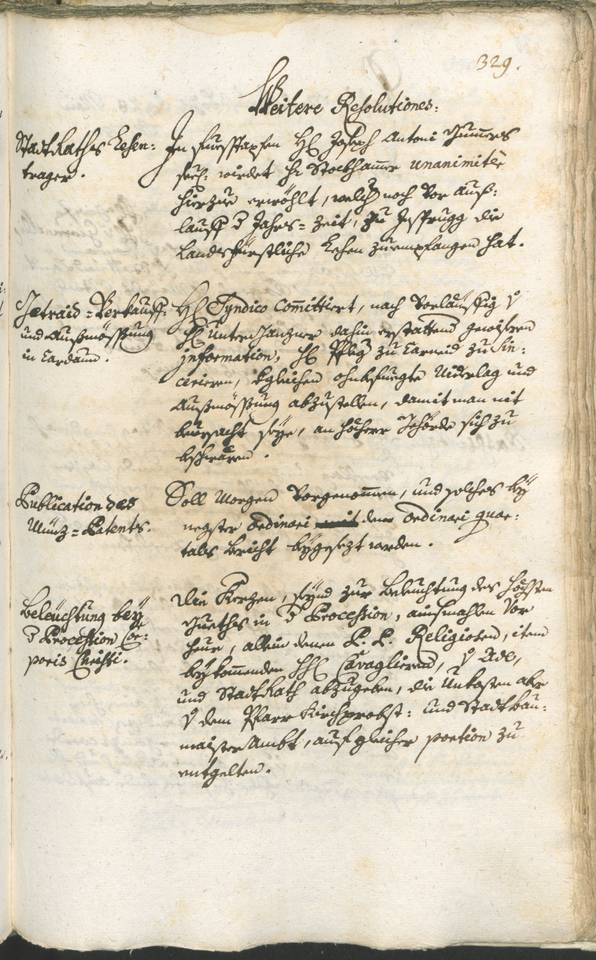 329.
Weitere Resolutiones:
StadtRathes Lehen-
trager.
In fuessstapfen H: Joseph Antoni Zumers
seel: wirdet H: Stockhamer unanimiter
hierzue erwöhlt, welch noch vor auß-
lauff Jahrs-Zeit, zu Insprugg die
Landsfürstliche Lehen zuempfangen hat.
Getraid-Verkauff:
und Außmössung
in Cardaun.
H: Syndico Committiert, nach vorläuffig
H: dahin erstattend
Information, H: Pfleg: zu Carneid zu Sin-
cerieren, dergleichen ohnbefuegte Niderlag und
Außmössung abzustellen, damit man nit
beursacht seye, an höherer Behörde sich zu
beschwären.
Publication des
Münz-Patents.
Soll Morgen vorgenommen, und solches bey
negster ordinari dem ordinari quar-
tals bericht beygesezt werden.
Beleüchtung bey
Procession Cor-
poris Christi.
Die Kerzen, seynd zur Beleuchtung des höchsten
Gueths in Procession, ainsmahlen vor
heur, allein denen P. P. Religiosen, item
beykommenden HH: Cavaglieren, Ade,
und StadtRath abzugeben, die Unkosten aber
dem Pfarr Kirchprobst: und Stadtbau-
maister Ambt, auf gleicher portion zu
entgelten.